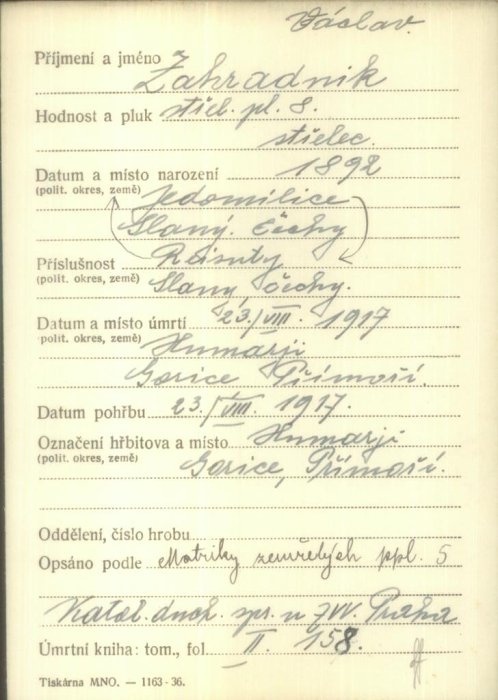 Václav.
Příjmení a jméno Zahradník
Hodnost a pluk střel. pl. 8.
střelec.
Datum a místo narození 1892
(polit. okres, země) Jedomilice
Slaný. Čechy
Příslušnost
(polit. okres, země) Slaný, Čechy.
Datum a místo úmrtí 23./VIII. 1917
(polit. okres, země) Humarji
Gorice Přímoří.
Datum pohřbu 23./VIII. 1917.
Označení hřbitova a místo Humarji
(polit. okres, země) Gorice, Přímoří.
Oddělení, číslo hrobu
Opsáno podle Matriky zemřelých ppl. 5
Katol. duch. spr. u ZVV. Praha
Úmrtní kniha: tom., fol. II. 158.
Tiskárna MNO. — 1163-36.